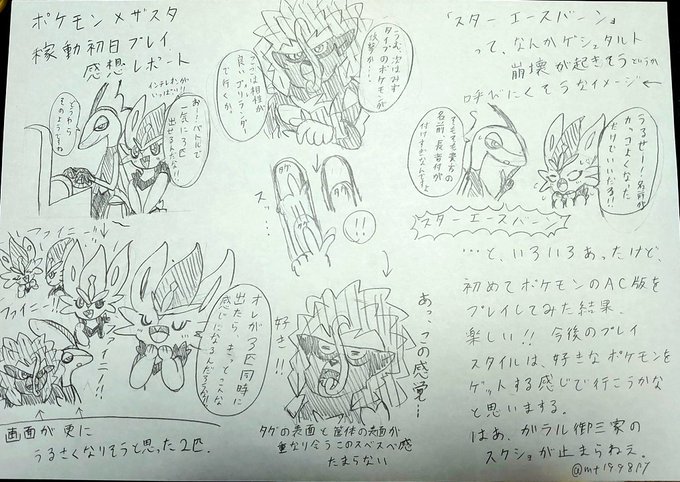 ポケモンメザスタ
稼動初日プレイ
感想レポート
お！バトルで
一気に3匹
出せるんだな！！
どうやら
そのようですね
ファイニー!!
ファイニー!!
イニー!!
オレが3匹同時に
出たら、きっとこんな
感じになるんだろうな!!
画面が更に
うるさくなりそうと思った2匹.
うむ、次はみず
タイプのポケモンが
ここは相性が
良いゴリランダー
で行くか。
ス…
!!
あっ、この感覚…
好き!!
タグの表面と筐体の表面が
重なり合うこのスベスベ感
たまらない
「スターエースバーン」
って、なんかゲシュタルト
崩壊が起きそうというか
呼びにくそうなイメージ←
そもそも貴方
名前長すぎ
うるせー！名前が
カッコよくなった
だけでいいだろ!!
スターエースバーン
…と、いろいろあったけど、
初めてポケモンのAC版を
プレイしてみた結果.
楽しい!! 今後のプレイ
スタイルは、好きなポケモンを
ゲットする感じで行こうかな
と思います。
はあ、ガラル御三家の
スクショが止まらねえ。
@mt19981y